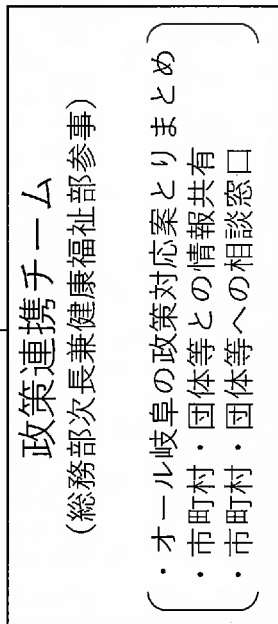 政策連携チーム
(総務部次長兼健康福祉部参事)
・オール岐阜の政策対応案とりまとめ
・市町村・団体等との情報共有
・市町村・団体等への相談窓口